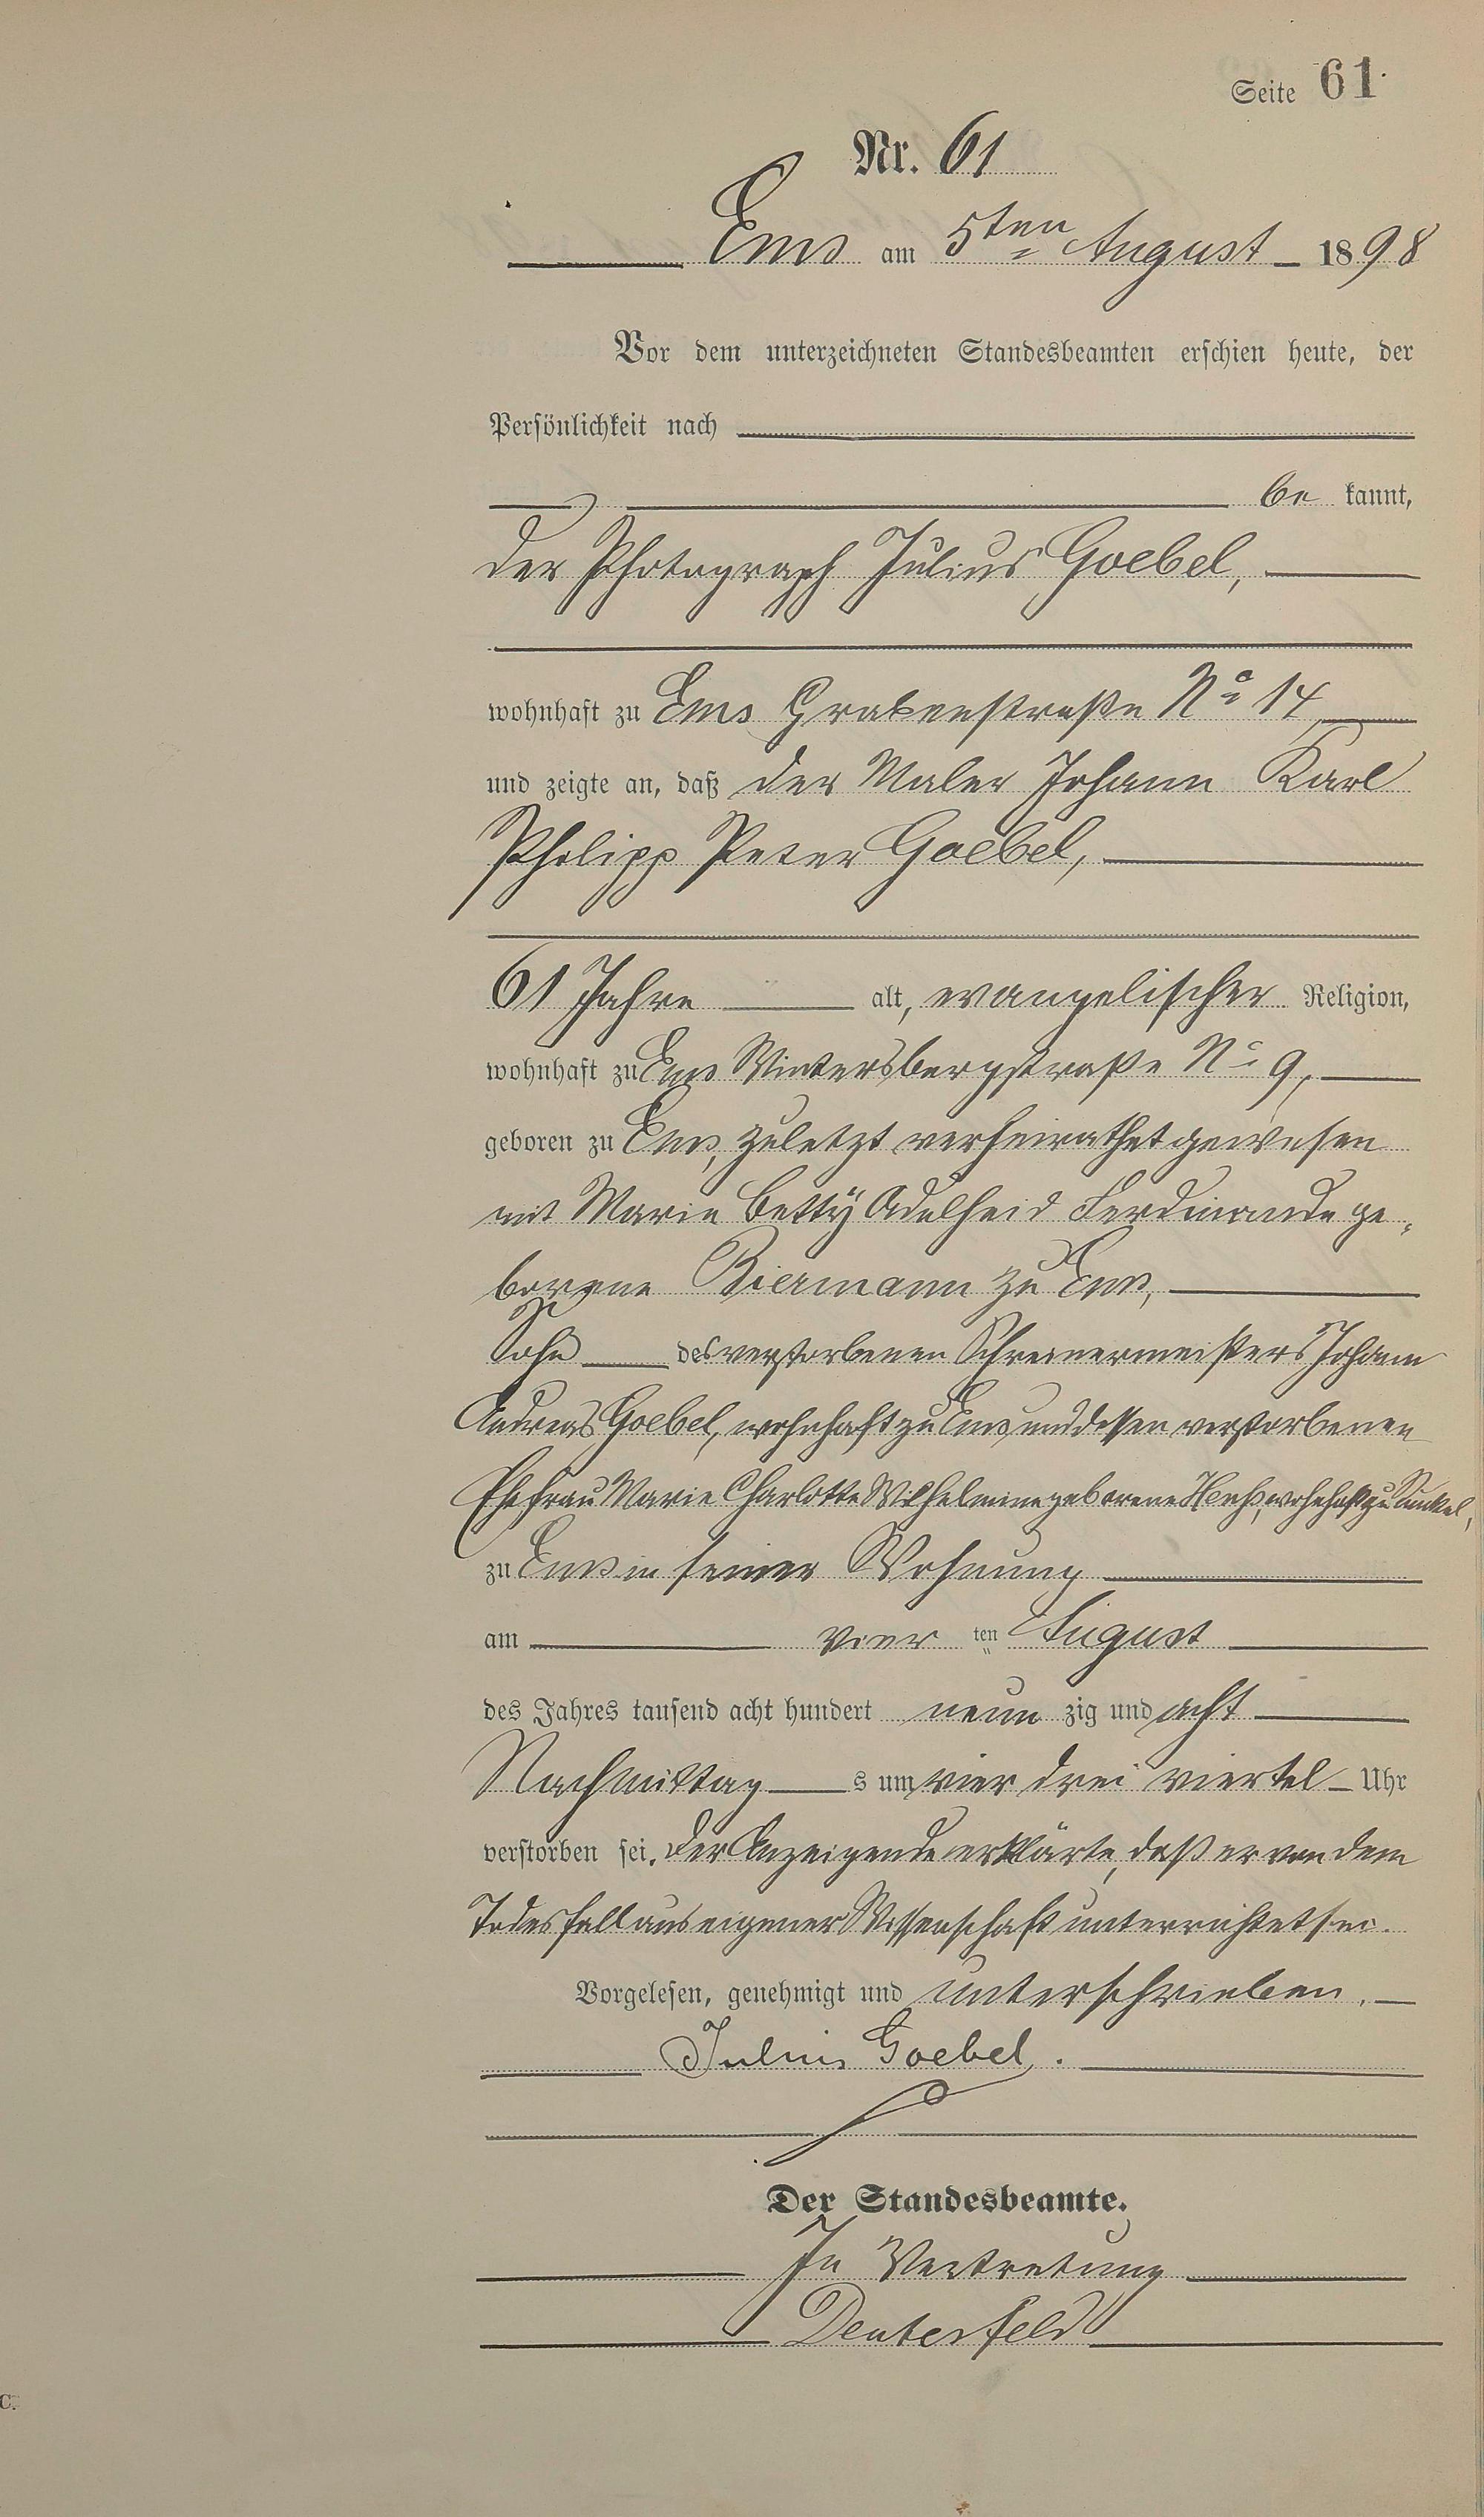 Seite 61.
Nr. 61
Ems am 5ten August 1898
Vor dem unterzeichneten Standesbeamten erschien heute, der
Persönlichkeit nach
be kannt,
der Photograph Julius Goebel,
wohnhaft zu Ems Grabenstraße No 14,
und zeigte an, daß der Maler Johann Karl
Philipp Peter Goebel,
61 Jahre alt, evangelischer Religion,
wohnhaft zu Ems Wintersbergstraße No 9,
geboren zu Ems, zuletzt verheirathet gewesen
mit Marie Betty Adelheid Ferdinande ge-
borene Biermann zu Ems,
Sohn des verstorbenen Schreinermeisters Johann
Andreas Goebel, wohnhaft zu Ems und dessen verstorbenen
Ehefrau Marie Charlotte Wilhelmine geborene wohnhaft zu
zu Ems in seiner Wohnung
am vier ten August
des Jahres tausend acht hundert neun zig und acht
Nachmittag s um vier drei viertel Uhr
verstorben sei. Der Anzeigende erklärte, daß er von dem
Todesfall aus eigener Wissenschaft unterrichtet sei.
Vorgelesen, genehmigt und unterschrieben.
Julius Goebel.
Der Standesbeamte.
In Vertretung
Deutesfeld
C.